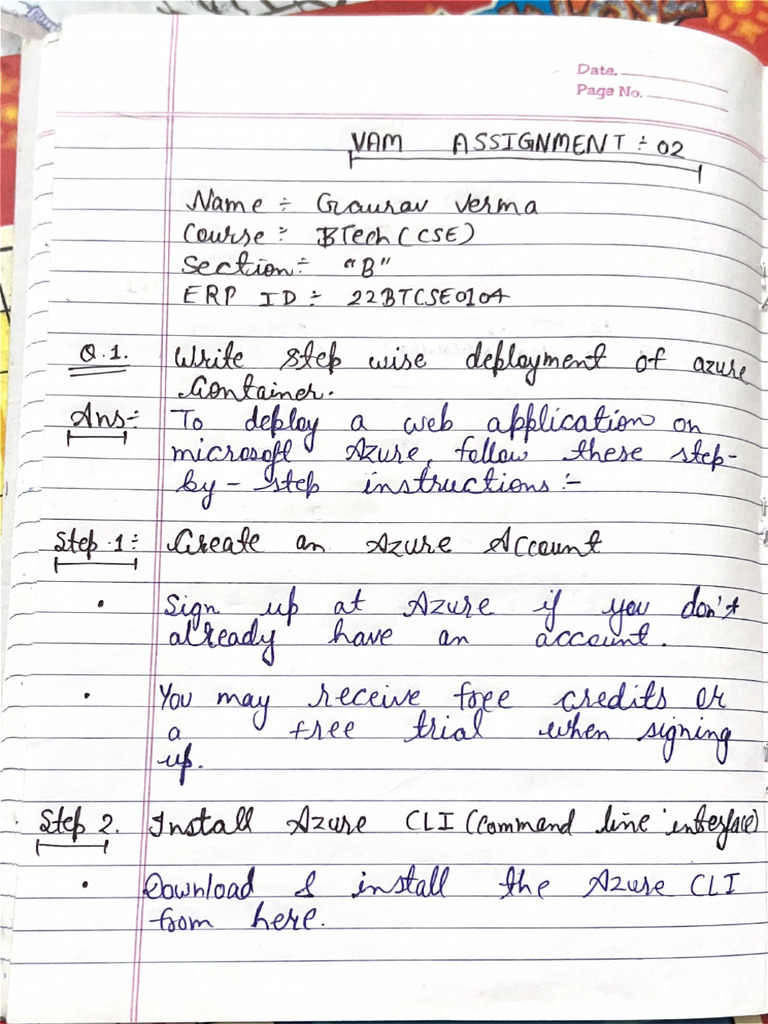 Date.
Page No.
VAM ASSIGNMENT ÷ 02
Name ÷ Gaurav Verma
Course ÷ BTech (CSE)
Section ÷ "B"
ERP ID ÷ 22BTCSE0104
Q.1. Write step wise deployment of azure
Container.
Ans ÷ To deploy a web application on
microsoft Azure, follow these step-
by-step instructions :-
Step 1 ÷ Create an Azure Account
• Sign up at Azure if you don't
already have an account.
• You may receive free credits or
a free trial when signing
up.
Step 2. Install Azure CLI (Command line interface)
• Download & install the Azure CLI
from here.